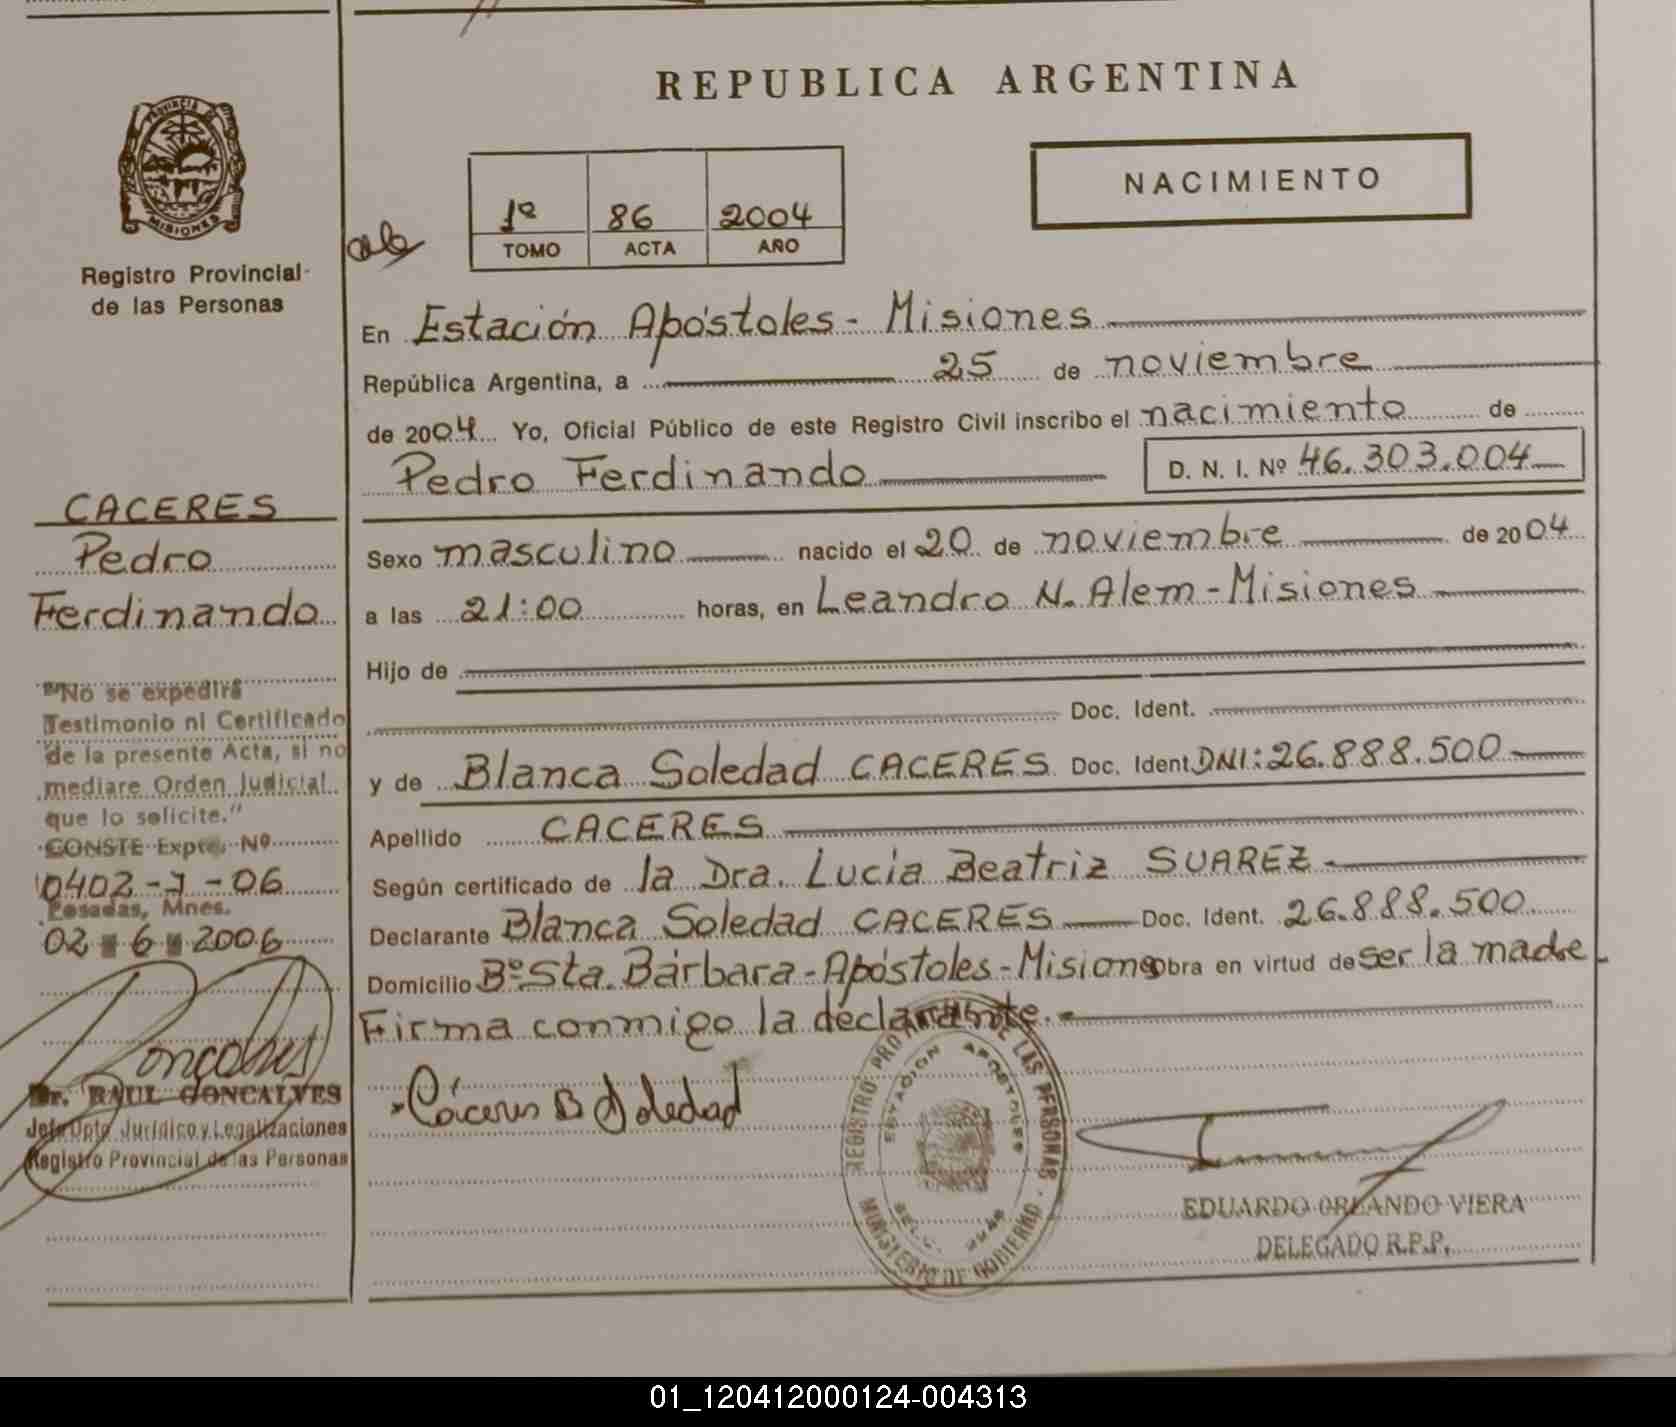 REPUBLICA ARGENTINA
PROVINCIA DE MISIONES
Registro Provincial
de las Personas
1º 86 2004
TOMO ACTA AÑO
NACIMIENTO
En Estación Apóstoles - Misiones
República Argentina, a 25 de noviembre
de 2004 Yo, Oficial Público de este Registro Civil inscribo el nacimiento de
Pedro Ferdinando D. N. I. Nº 46.303.004
Sexo masculino nacido el 20 de noviembre de 2004
a las 21:00 horas, en Leandro N. Alem - Misiones
Hijo de
Doc. Ident.
y de Blanca Soledad CACERES Doc. Ident DNI: 26.888.500
Apellido CACERES
Según certificado de la Dra. Lucia Beatriz SUAREZ
Declarante Blanca Soledad CACERES Doc. Ident. 26.888.500
Domicilio Bº Sta. Bárbara - Apóstoles - Misiones obra en virtud de ser la madre
Firma conmigo la declarante.
Cáceres B Soledad
REGISTRO PROV. DE LAS PERSONAS
ESTACION APOSTOLES
MINISTERIO DE GOBIERNO
EDUARDO ORLANDO VIERA
DELEGADO R.P.P.
CACERES
Pedro
Ferdinando
"No se expedirá
Testimonio ni Certificado
de la presente Acta, si no
mediare Orden Judicial
que lo solicite."
CONSTE Expte. Nº
0402-J-06
Posadas, Mnes.
02 6 2006
Dr. RAUL GONCALVES
Jefe Dpto. Jurídico y Legalizaciones
Registro Provincial de las Personas
01_120412000124-004313